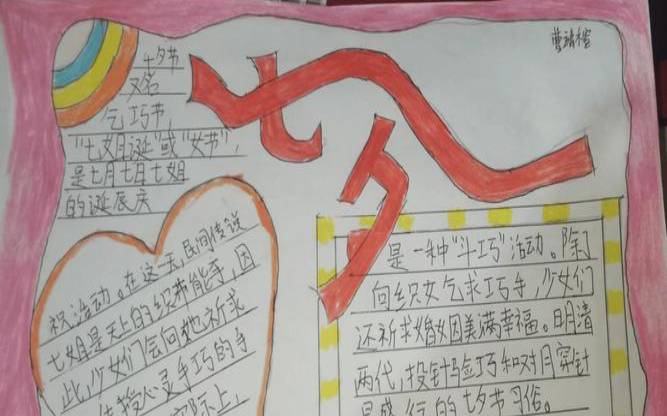 七夕
七夕节
又名
乞巧节,
"七姐诞"或"女节",
是七月七日七姐
的诞辰庆
祝活动。在这一天,民间传说
七姐是天上的织布能手,因
此,少女们会向她祈求
传授心灵手巧的手
实际上,
是一种"斗巧"活动。除了
向织女乞求巧手,少女们
还祈求婚姻美满幸福。明清
两代,投针验巧和对月穿针
是盛行的七夕节习俗。